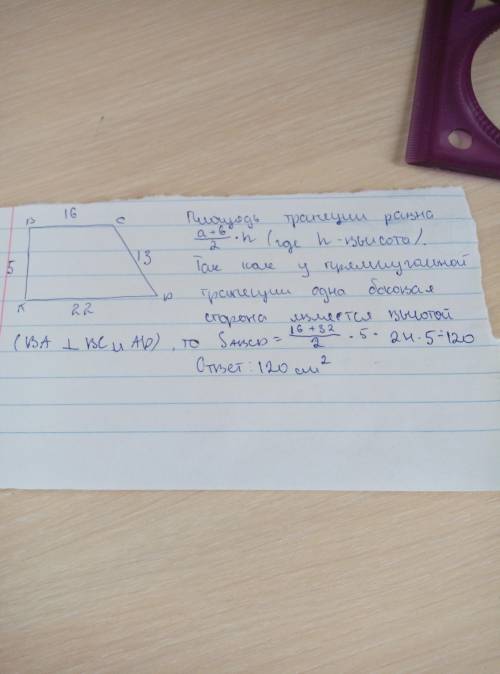 16
B C
5
13
A D
22
Площадь трапеции равна
a+b/2 · h (где h - высота).
Так как у прямоугольной
трапеции одна боковая
сторона является высотой
(BA ⊥ BC и AD), то SABCD = 16+32/2 · 5 = 24 · 5 = 120
Ответ: 120 см²